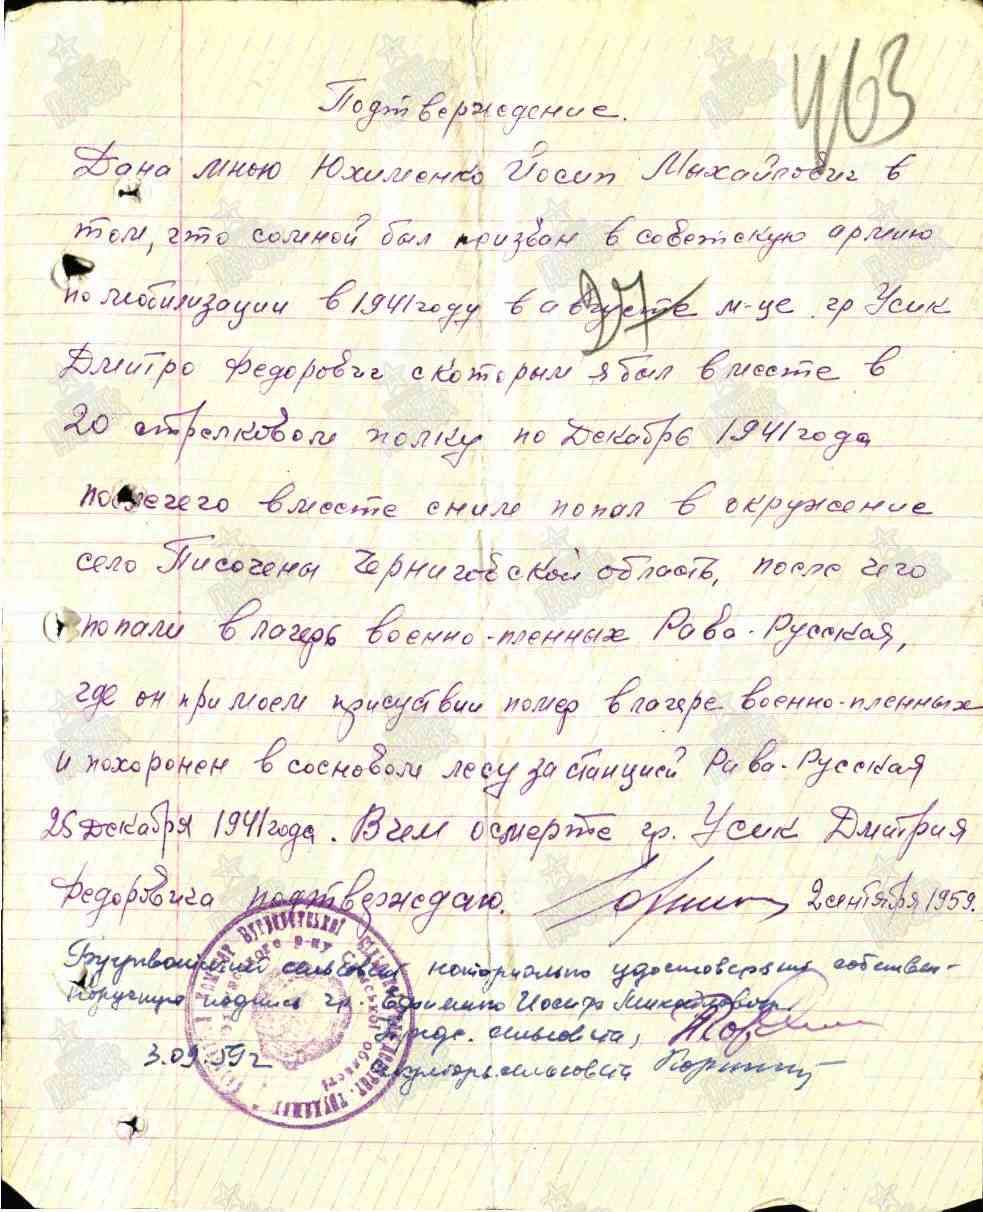 463
Подтверждение.
Дана мною Юхименко Йосип Мыхайлович в
том, что сомной был призван в советскую армию
по мобилизации в 1941 году в августе м-це. гр Усик
27
Дмитро Федорович скоторым я был вместе в
20 стрелковом полку по Декабрь 1941 года
послечего вместе сним попал в окружение
село Писочены Черниговской область, после чего
попали в лагерь военно-пленных Рава-Русская,
где он при моем присуствии помер в лагере военно-пленных
и похоронен в сосновом лесу за станцией Рава-Русская
25 Декабря 1941 года. В чем осмерте гр. Усик Дмитрия
Федоровича подтверждаю. 2 сентября 1959.
сельсовет ноториально удостоверяет собствен-
норучную подпись гр. Иосифа Михайловича
Предс. сельсовета,
3.09.59 г секретарь сельсовета